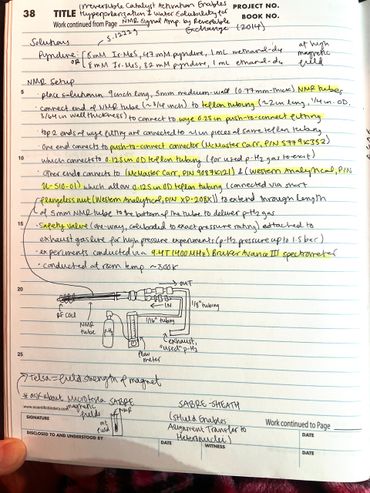 38 TITLE Irreversible Catalyst Activation Enables
Hyperpolarization & Water Solubility for
Work continued from Page NMR Signal Amp. by Reversible
Exchange (2014)
PROJECT NO.
BOOK NO.
Solutions
Pyridine: 6mM Ir-Mes, 43 mM pyridine, 1 mL methanol-d4
or 8mM Ir-Mes, 82 mM pyridine, 1 mL methanol-d4
at high
magnetic
field
NMR Setup
5
- place solution in 9 inch long, 5mm medium-wall (0.77-mm-thick) NMR tubes
- connect end of NMR tube (~1/4 inch) to teflon tubing (~2 in long, 1/4 in. OD,
in well thickness) to connect to wye 0.25 in push-to-connect fitting
- top 2 ends of wye fitting are connected to ~1 in pieces of same teflon tubing
- One end connects to push-to-connect connector (McMaster Carr, P/N
10
which connects to 0.125 in OD teflon tubing (for used p-H2 gas to exit)
- Other end connects to (McMaster Carr, P/N & (Western Analytical, P/N
U-510-01) which allow 0.125 in OD teflon tubing (connected via short
flangeless nut (Western Analytical, P/N XP-208X)) to extend through length
of 5mm NMR tube to the bottom of the tube to deliver p-H2 gas
15
- Safety valve (one-way, calibrated to exact pressure rating) attached to
exhaust gas line for high pressure experiments (p-H2 pressure up to bar)
- experiments conducted in a 9.4T (400 MHz) Bruker Avance III spectrometer
- conducted at room temp ~300K
20
→ OUT
← IN
1/8" tubing
1/16" tubing
RF coil
NMR
tube
H2
↓ exhaust,
"used" p-H2
flow
meter
25
→ Telsa = field strength of magnet
* ask about Microtesla SABRE
magnetic
fields
NMR
SABRE-SHEATH
(Shield Enables
Alignment Transfer to
Heteronuclei)
Work continued to Page
SIGNATURE
DATE
DISCLOSED TO AND UNDERSTOOD BY
DATE
WITNESS
DATE